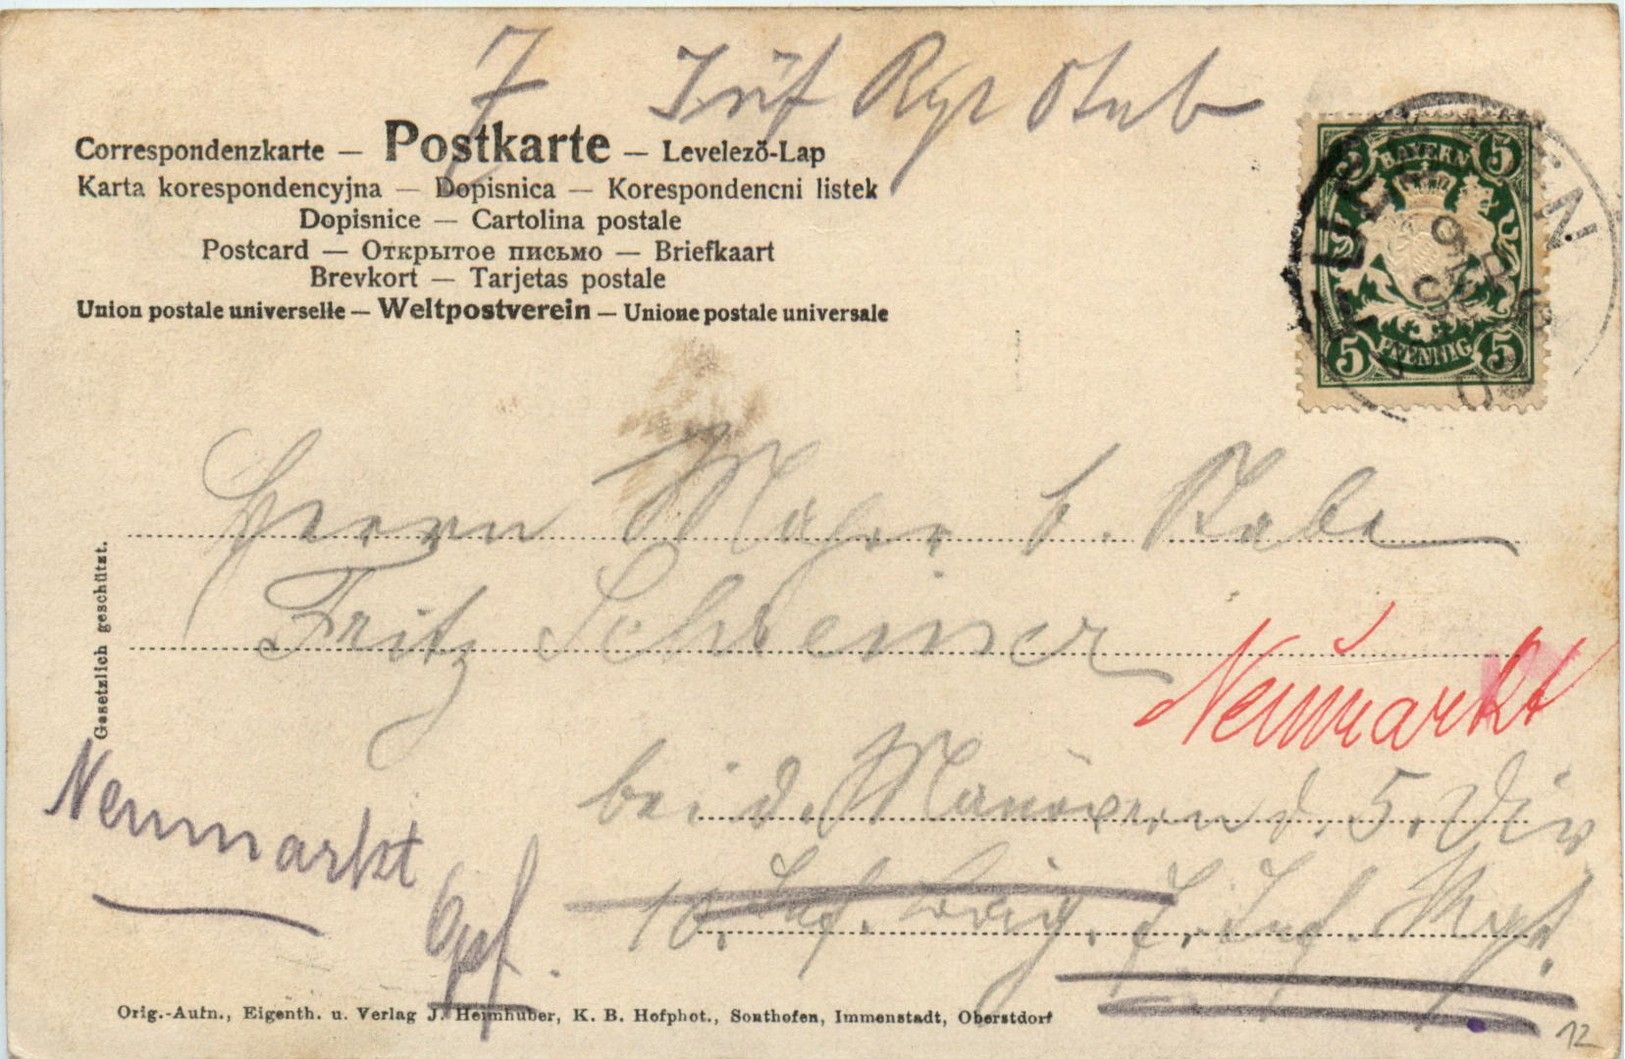 7 Inf Rgt Stab
Correspondenzkarte — Postkarte — Levelező-Lap
Karta korespondencyjna — Dopisnica — Korespondencni listek
Dopisnice — Cartolina postale
Postcard — Открытое письмо — Briefkaart
Brevkort — Tarjetas postale
Union postale universelle — Weltpostverein — Unione postale universale
BAYERN
5 5
5 PFENNIG 5
Herrn Major b. Stabe
Fritz Schreiner
Neumarkt
bei d. Manövern d. 5. Div
Neumarkt
10. Inf. Brig. 7. Inf. Rgt.
Opf.
Gesetzlich geschützt.
Orig.-Aufn., Eigenth. u. Verlag J. Heimhuber, K. B. Hofphot., Sonthofen, Immenstadt, Oberstdorf
12